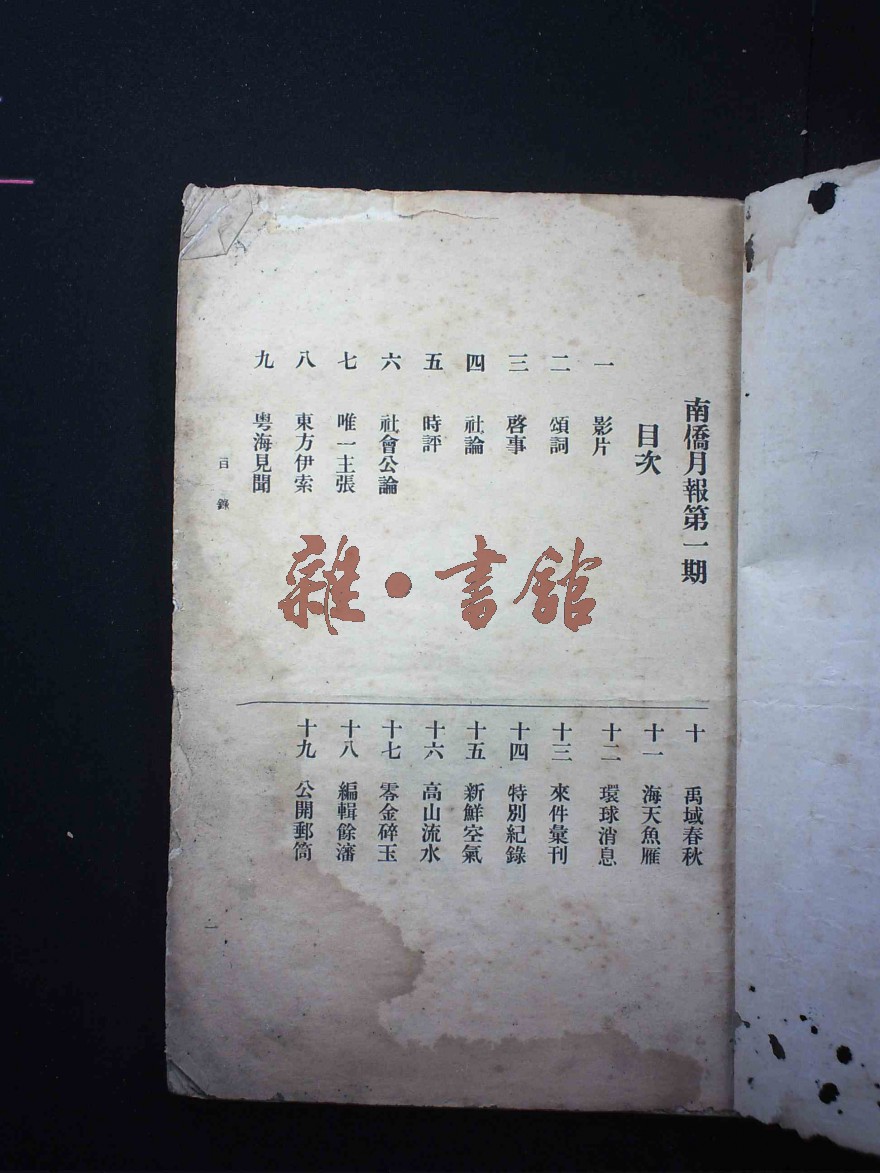 南僑月報第一期
目次
一 影片
二 頌詞
三 啓事
四 社論
五 時評
六 社會公論
七 唯一主張
八 東方伊索
九 粵海見聞
十 禹域春秋
十一 海天魚雁
十二 環球消息
十三 來件彙刊
十四 特別紀錄
十五 新鮮空氣
十六 高山流水
十七 零金碎玉
十八 編輯餘瀋
十九 公開郵筒
目錄
一
雜·書館